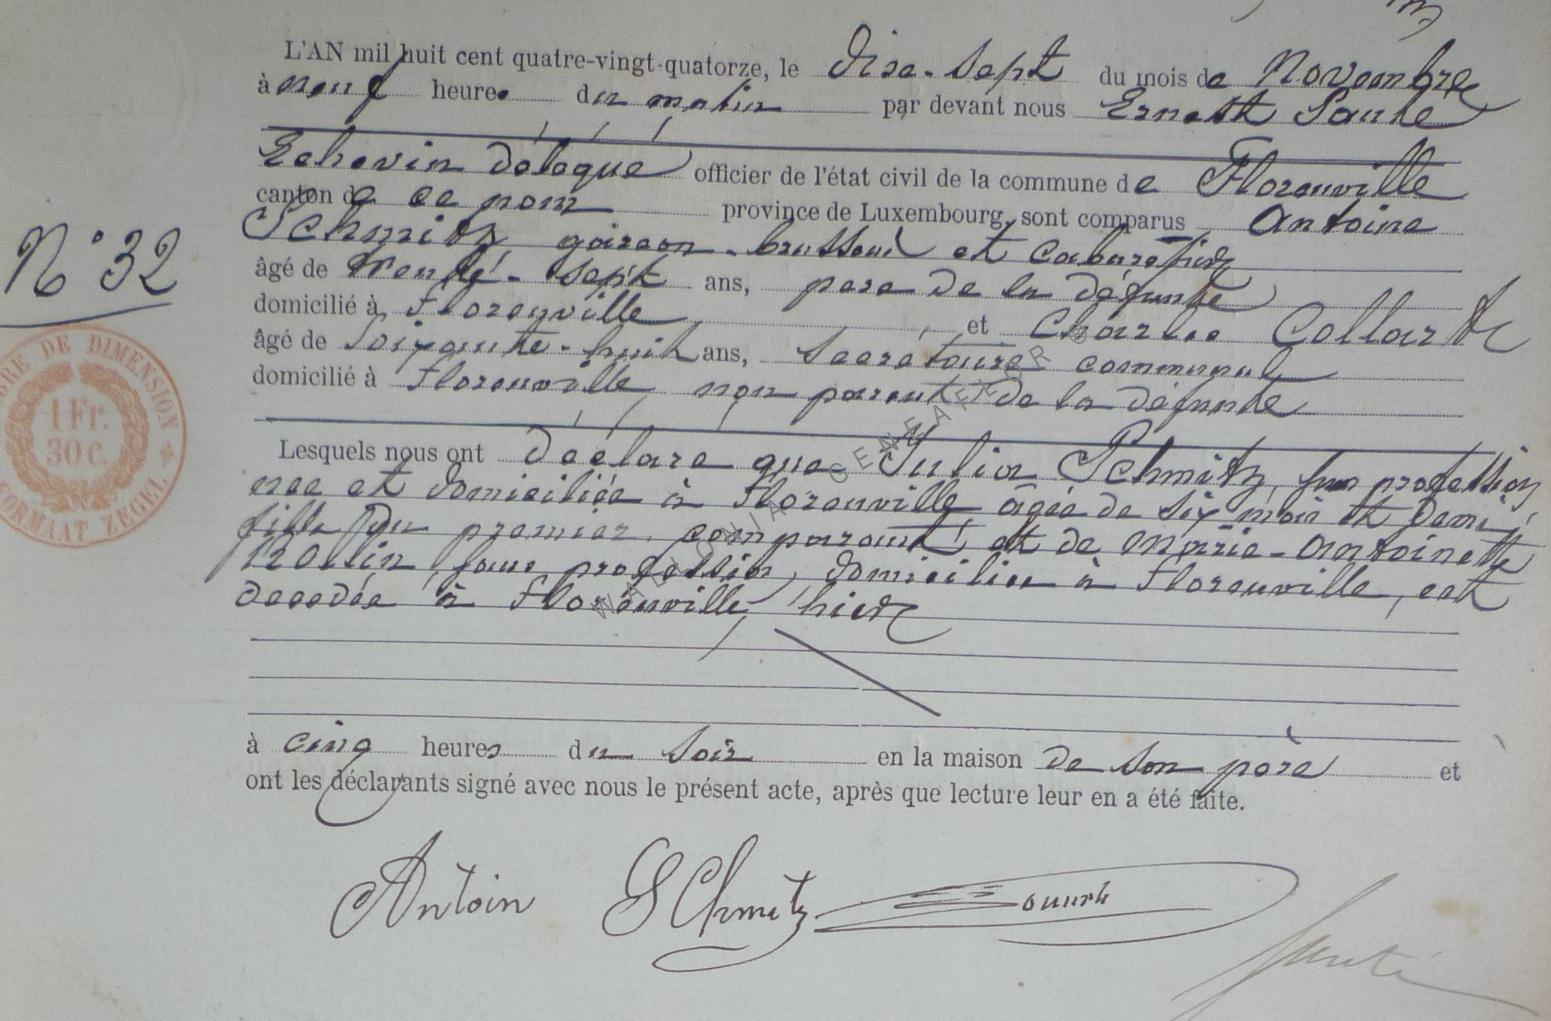 L'AN mil huit cent quatre-vingt-quatorze, le dixe-sept du mois de Novembre
à neuf heures du matin par devant nous Ernest
Echevin délégué officier de l'état civil de la commune de Florenville
canton de ce nom province de Luxembourg, sont comparus Antoine
Schmitz garçon-brasseur et cabaretier
âgé de trente-sept ans, père de la défunte
domicilié à Florenville et Charles Collart
âgé de soixante-huit ans, secrétaire communal
domicilié à Florenville non parent de la défunte
N° 32
TIMBRE DE DIMENSION
1 Fr.
30 c.
FORMAAT ZEGEL
Lesquels nous ont déclaré que Julia Schmitz, sans profession
née et domiciliée à Florenville âgée de six mois et demi,
fille du premier comparant et de Marie-Antoinette
Rollin, sans profession, domiciliée à Florenville, est
décédée à Florenville, hier
à cinq heures du soir en la maison de son père et
ont les déclarants signé avec nous le présent acte, après que lecture leur en a été faite.
Antoin Schmitz